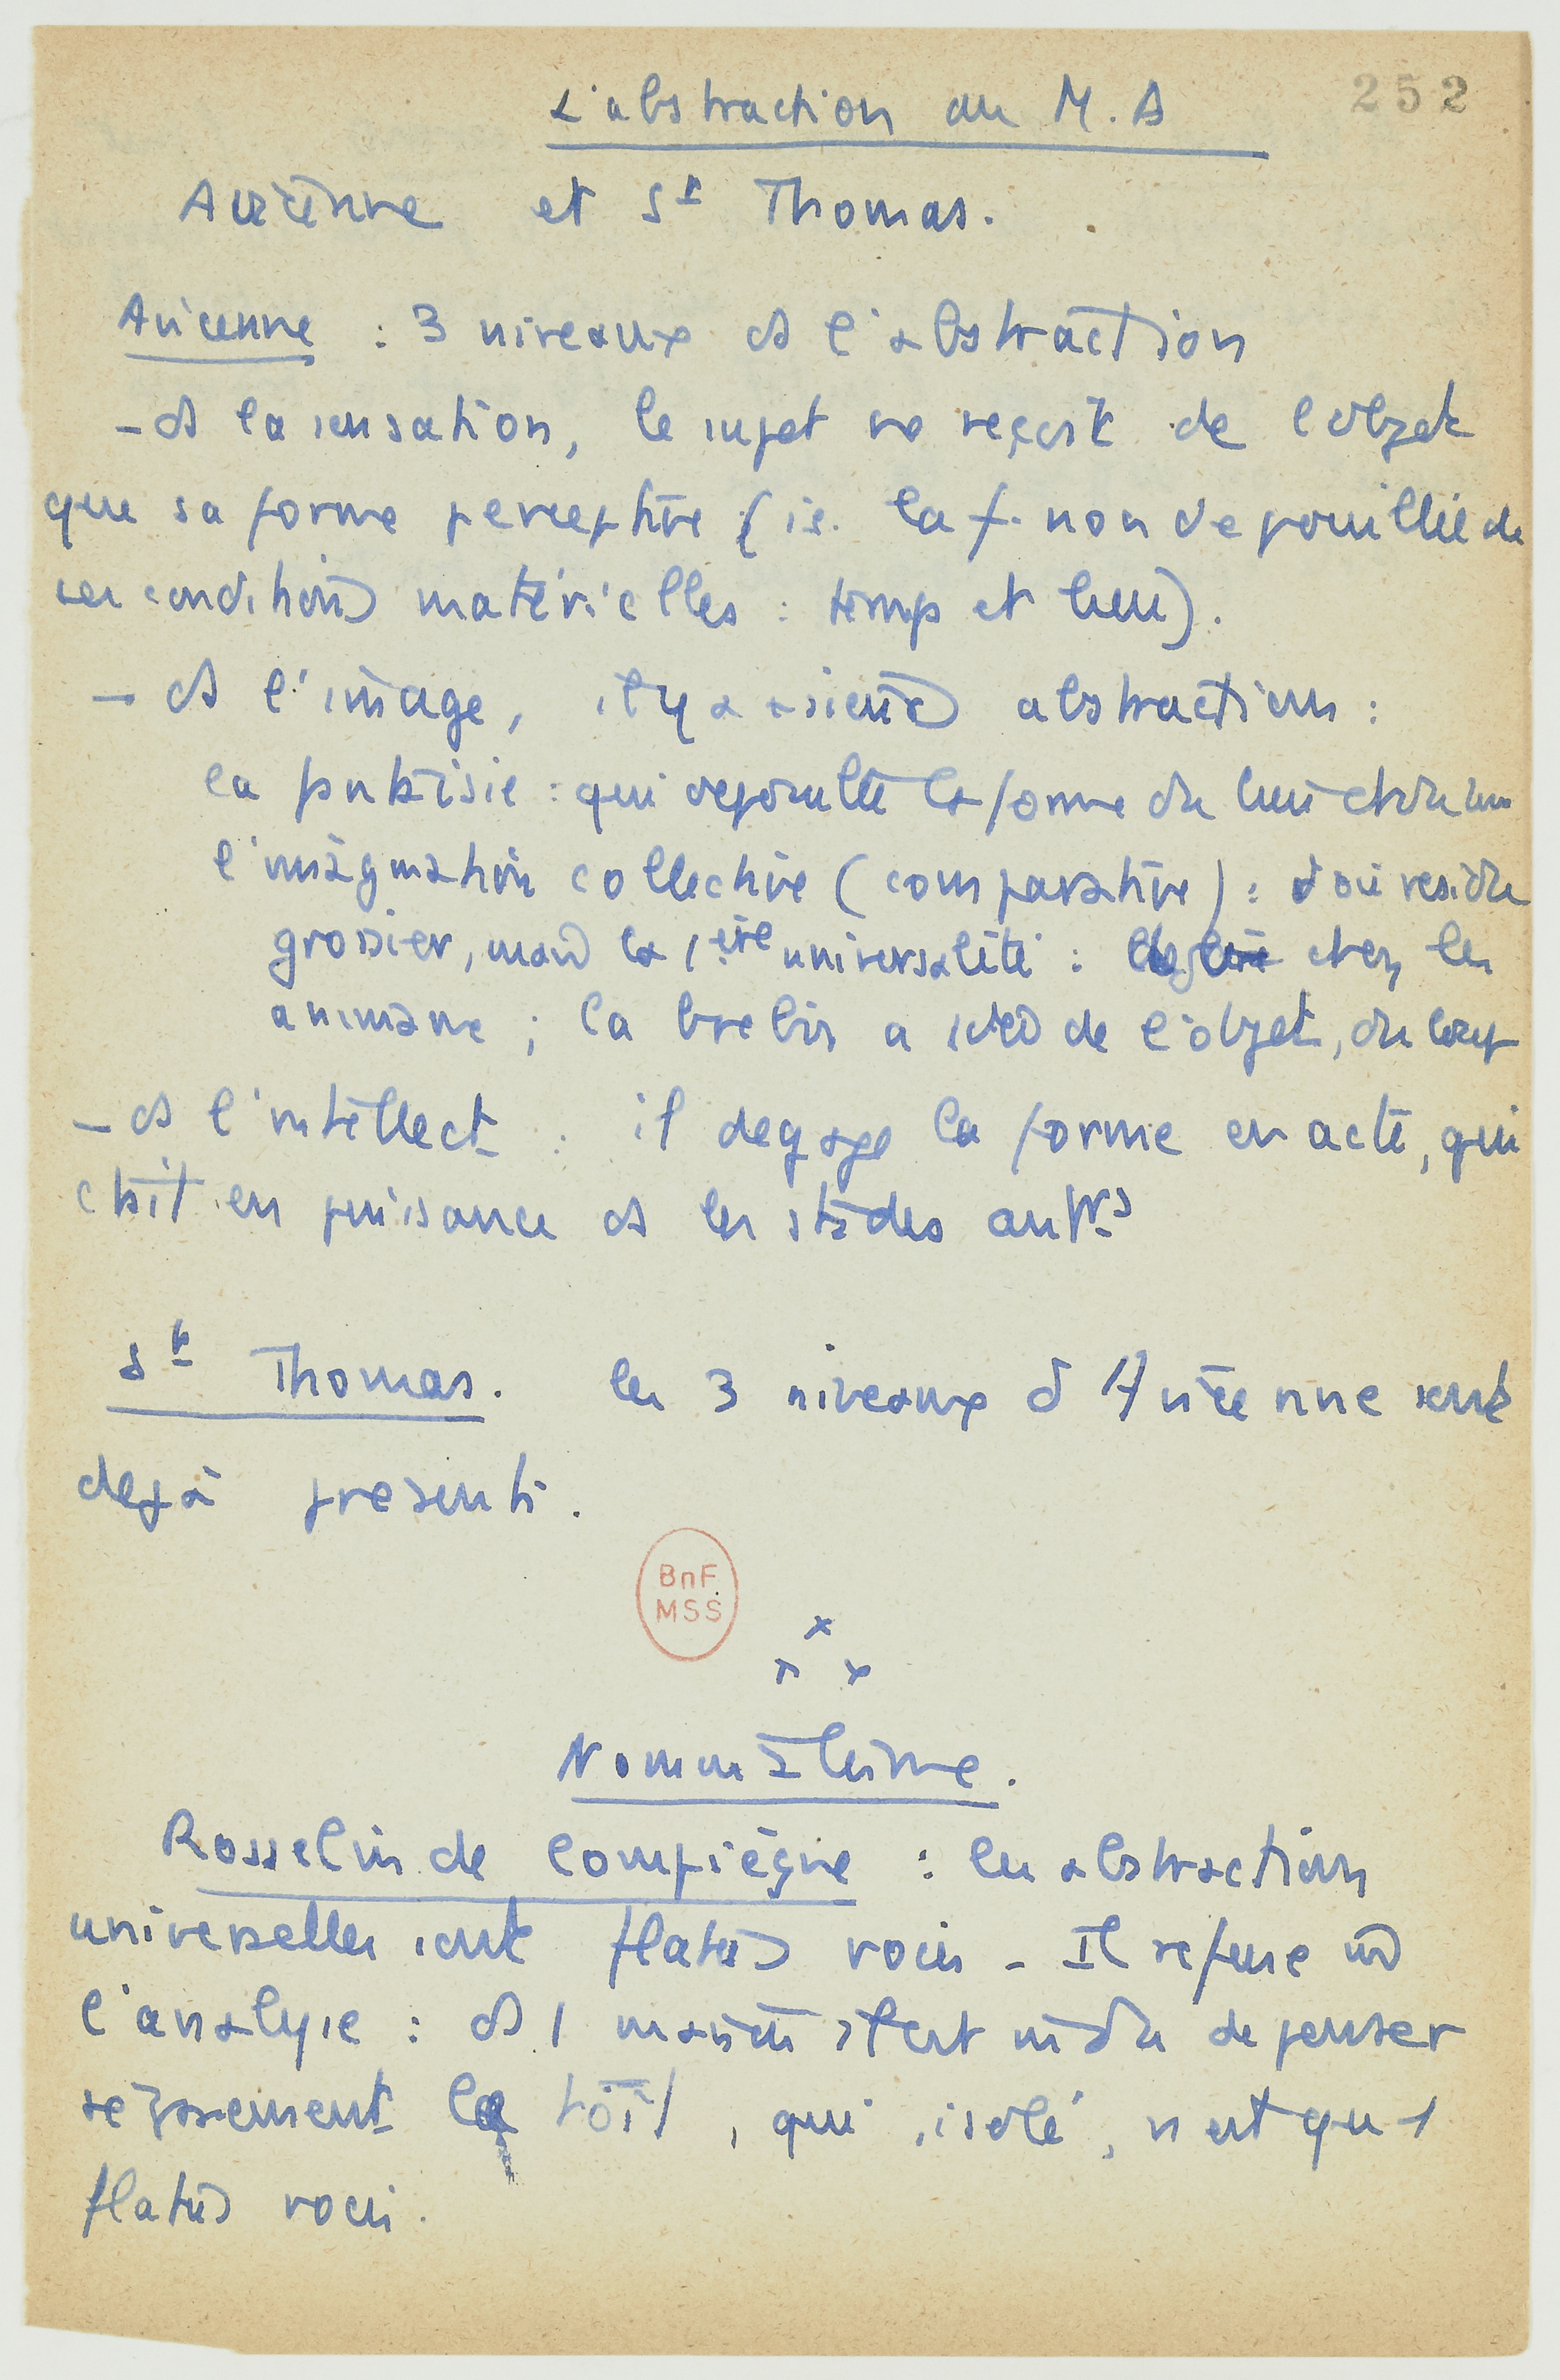 252
L'abstraction au M. A
Avicenne et St Thomas.
Avicenne : 3 niveaux ds l'abstraction
- ds la sensation, le sujet ne reçoit de l'objet
que sa forme perceptive (i.e. la f. non dépouillée de
ses conditions matérielles : temps et lieu).
- ds l'image, il y a abstractions :
la fantaisie : qui dépouille la forme du lieu et du
l'imagination collective (comparative) : d'où résidu
grossier, mais la 1ère universalité : chez les
animaux ; la brebis a idée de l'objet, du loup
- ds l'intellect : il dégage la forme en acte, qui
était en puissance ds les stades antrs
St Thomas. les 3 niveaux d'Avicenne sont
déjà présents.
BnF
MSS
x
x x
Nominalisme.
Rosselin de Compiègne : les abstractions
universelles sont flatus vocis - Il refuse
l'analyse : ds 1 maison il est de penser
séparément le toit, qui, isolé, n'est qu'1
flatus vocis.